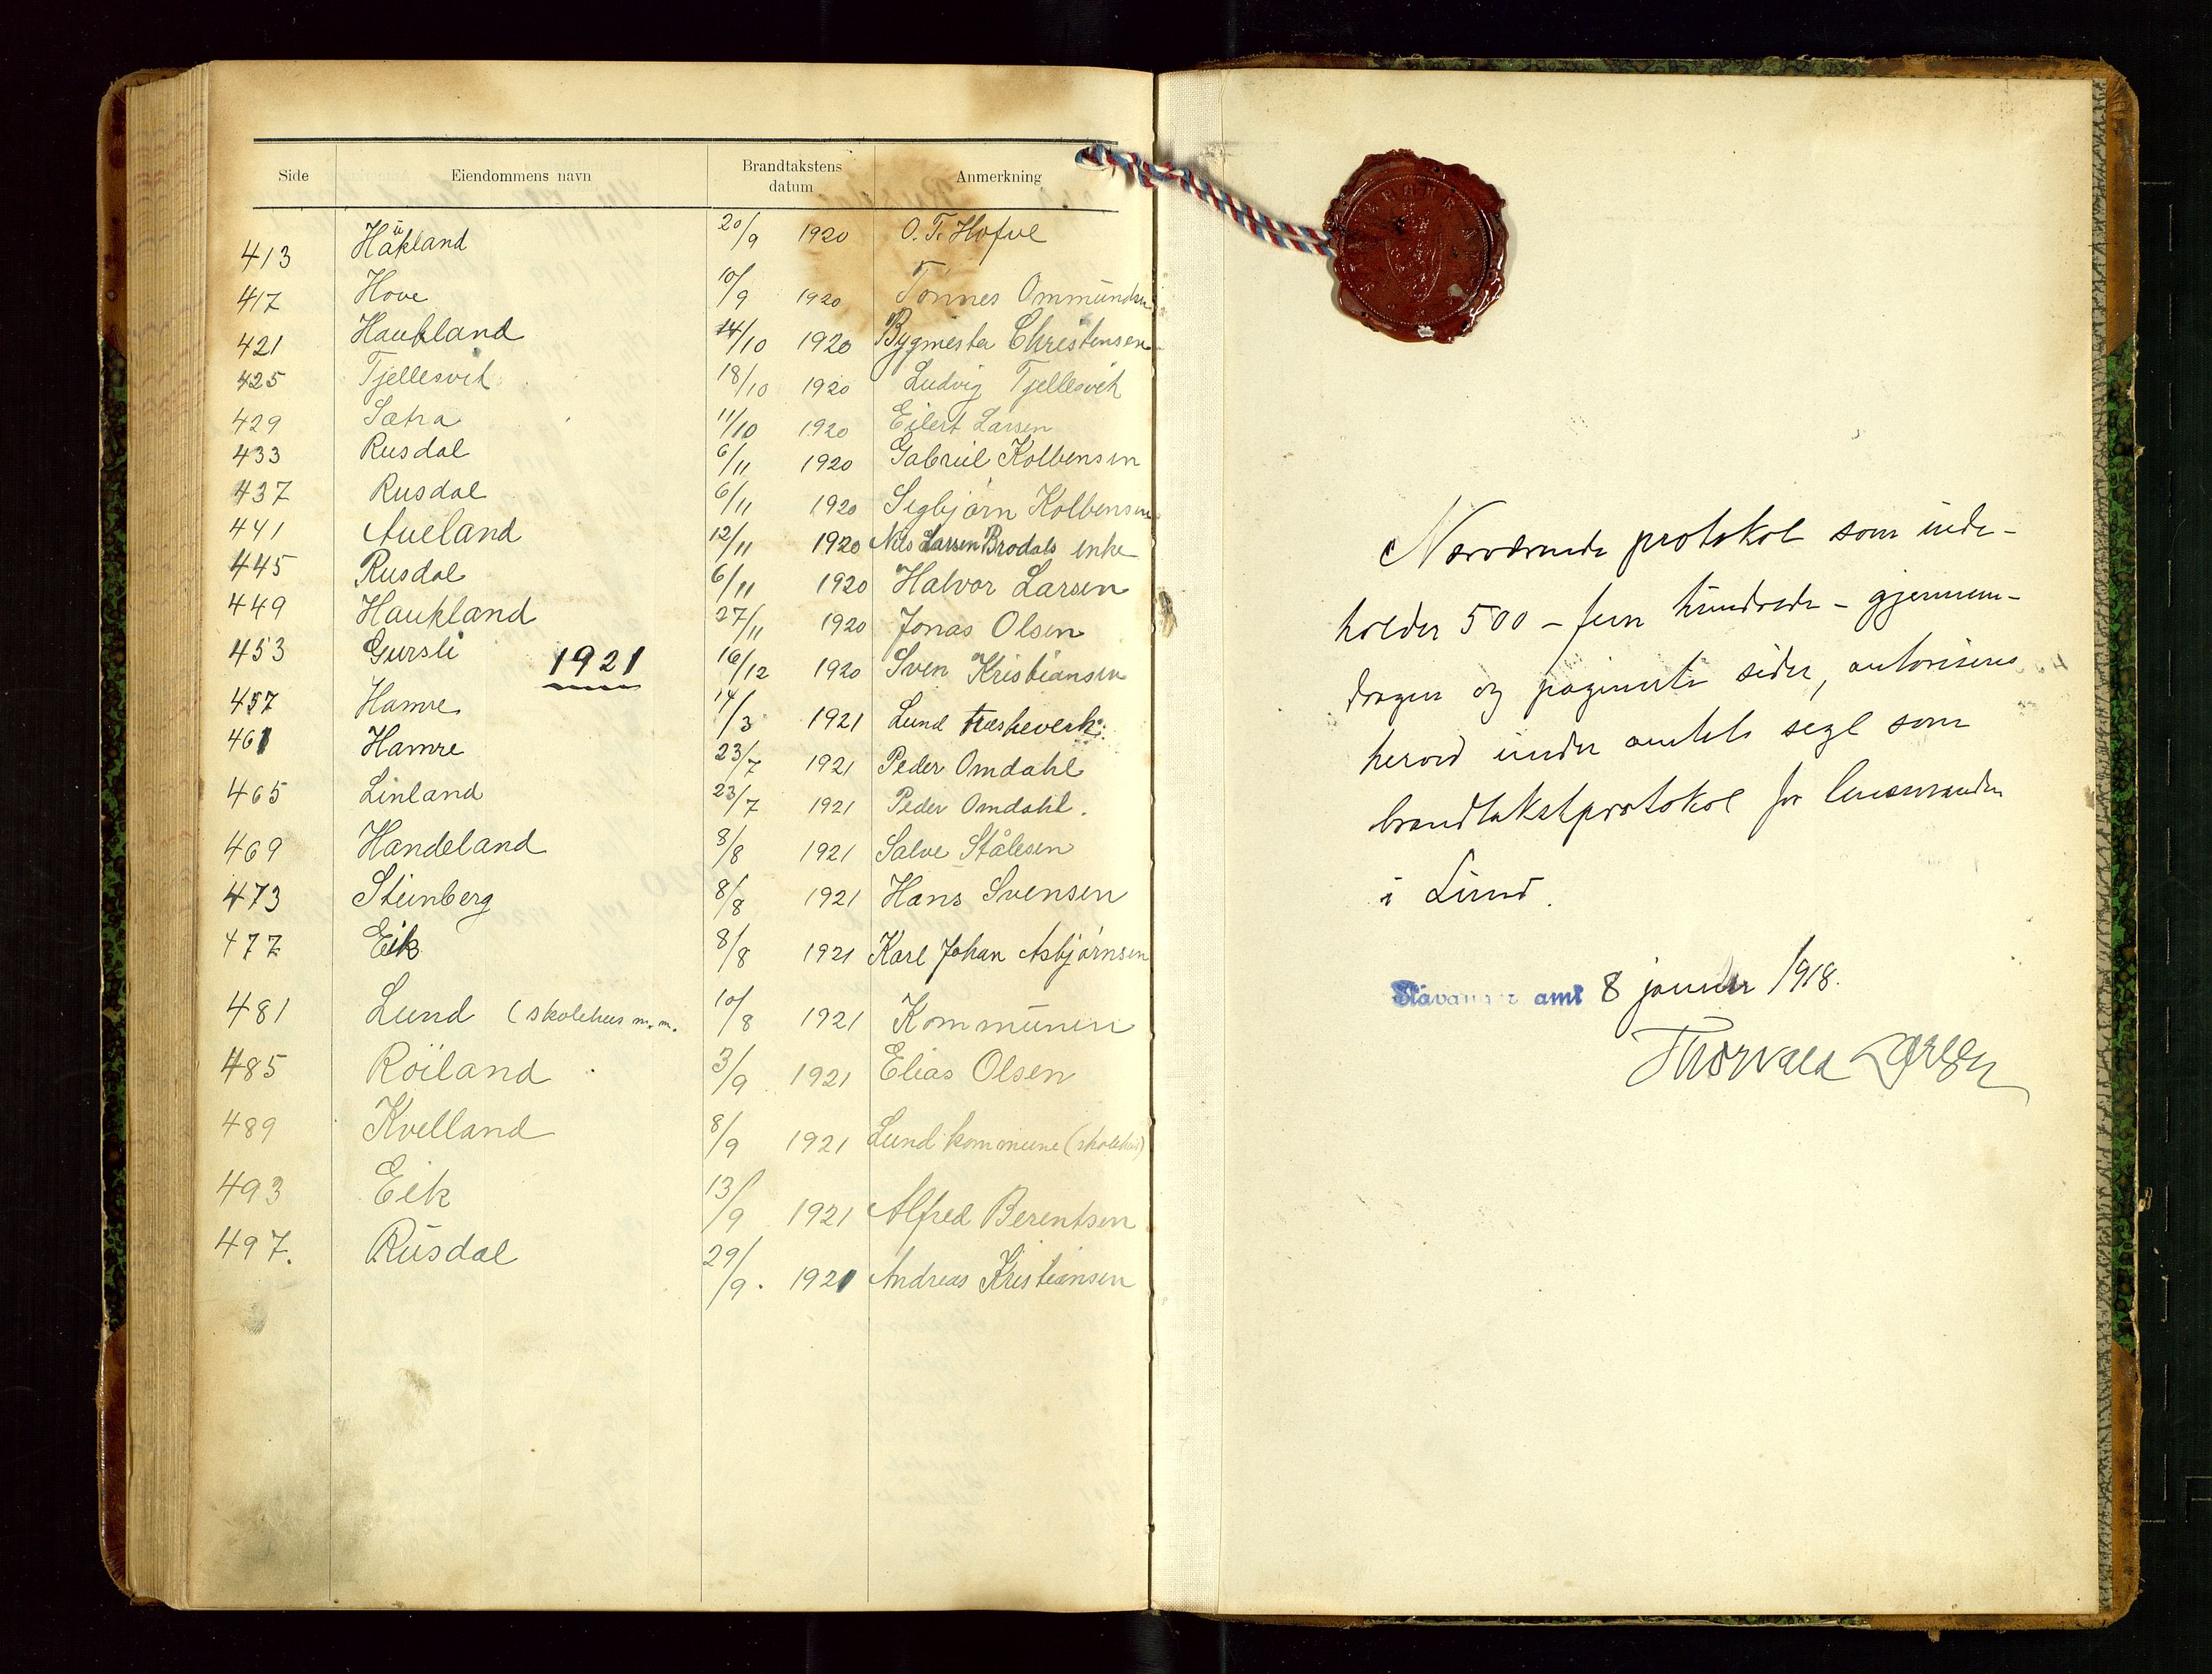 Side Eiendommens navn Brandtakstens datum Anmerkning
413 Haukland 20/9 1920 O. T. Hofve
417 Hove 10/9 1920 Tönnes Ommundsen
421 Haukland 14/10 1920 Bygmester Christensen
425 Tjellesvik 18/10 1920 Ludvig Tjellesvik
429 Sætra 11/10 1920 Eilert Larsen
433 Rusdal 6/11 1920 Gabriel Kolbensen
437 Rusdal 6/11 1920 Segbjørn Kolbensen
441 Aueland 12/11 1920 Nils Larsen Brodals enke
445 Rusdal 6/11 1920 Halvor Larsen
449 Haukland 27/11 1920 Jonas Olsen
453 Gursli 16/12 1920 Sven Kristiansen
1921
457 Hamre 14/3 1921 Lund træskeverk
461 Hamre 23/7 1921 Peder Omdahl
465 Linland 23/7 1921 Peder Omdahl.
469 Handeland 8/8 1921 Salve Stålesen
473 Steinberg 8/8 1921 Hans Svensen
477 Eik 8/8 1921 Karl Johan Asbjørnsen
481 Lund (skolehus m.m. 10/8 1921 Kommunen
485 Röiland 3/9 1921 Elias Olsen
489 Kvelland 8/9 1921 Lund kommune (skolehus)
493 Eik 13/9 1921 Alfred Berentsen
497. Rusdal 29/9. 1921 Andreas Kristiansen
Nærværende protokol som inde-
holder 500 - fem hundrede - gjennem-
dragne og paginerte sider, autoriseres
herved under amtets segl som
brandtakstprotokol for lensmanden
i Lund.
Stavanger amt 8 januar 1918.
Thorvald Larsen